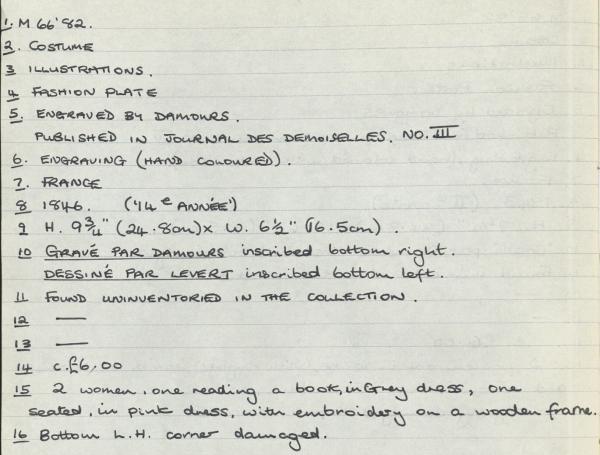 1. M 66'82.
2. COSTUME
3 ILLUSTRATIONS.
4 FASHION PLATE
5. ENGRAVED BY DAMOURS.
PUBLISHED IN JOURNAL DES DEMOISELLES. NO. III
6. ENGRAVING (HAND COLOURED).
7. FRANCE
8 1846. ('14e ANNÉE')
9 H. 9 3/4" (24.8cm) x W. 6 1/2" (16.5cm).
10 GRAVÉ PAR DAMOURS inscribed bottom right.
DESSINÉ PAR LEVERT inscribed bottom left.
11 FOUND UNINVENTORIED IN THE COLLECTION.
12 —
13 —
14 c.£6.00
15 2 women, one reading a book, in Grey dress, one
seated, in pink dress, with embroidery on a wooden frame.
16 Bottom L.H. corner damaged.